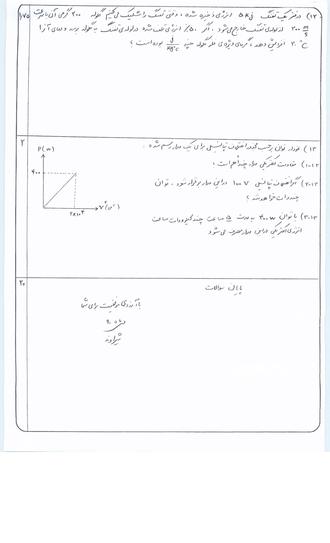 ۱۲) در فنر یک تفنگ ۵kJ انرژی ذخیره شده ، وقتی تفنگ را شلیک می کنیم گلوله ۲۰۰ گرمی آن با سرعت
۲۰۰ m/s از لوله ی تفنگ خارج می شود . اگر ۵۰٪ از انرژی تلف شده در لوله ی تفنگ به گلوله برسد و دمای آن را
۲۰°C افزایش دهد ، گرمای ویژه ی گلوله چند J/kg°C بوده است ؟
۱/۷۵
۱۳) نمودار توان برحسب مجذور اختلاف پتانسیل برای یک مدار رسم شده :
۲
۱-۱۳) مقاومت الکتریکی مدار چند اهم است ؟
۲-۱۳) اگر اختلاف پتانسیل ۱۰۰ V در این مدار برقرار شود . توان
چند وات خواهد شد ؟
۳-۱۳) با توان ۴۰۰w به مدت ۵ ساعت چند کیلووات ساعت
انرژی الکتریکی در این مدار مصرف می شود
P(w)
۴۰۰
V²(v²)
۲۰
پایان سوالات
با آرزوی موفقیت برای شما